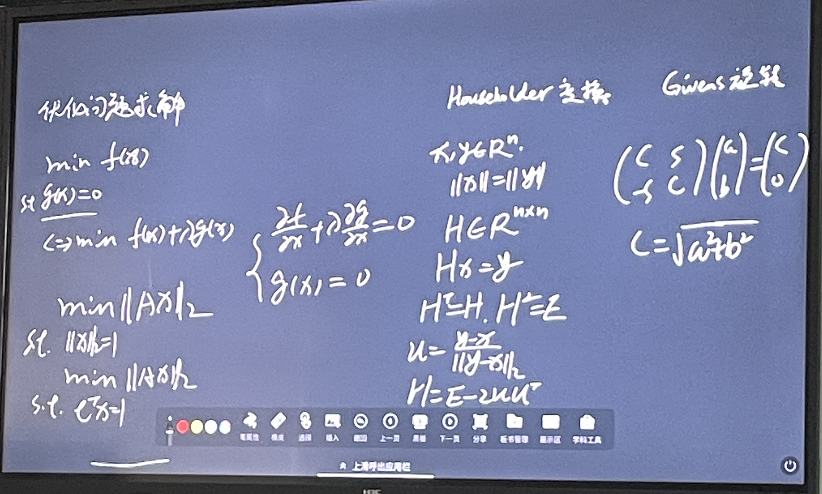 优化问题求解
min f(x)
s.t. g(x)=0
<=> min f(x)+λg(x)
∂f/∂x+λ∂g/∂x=0
g(x)=0
min||Ax||₂
s.t. ||x||₂=1
min||Ax||₂
s.t. eᵀx=1
Householder 变换
x,y∈Rⁿ.
||x||=||y||
H∈Rⁿˣⁿ
Hx=y
Hᵀ=H, H²=E
u=(y-x)/||y-x||₂
H=E-2uuᵀ
Givens 旋转
(c s; -s c)(a; b)=(c; 0)
c=√(a²+b²)
笔属性 擦除 选择 插入 撤回 上一页 黑板 下一页 分享 板书管理 展示区 学科工具
上滑呼出应用栏